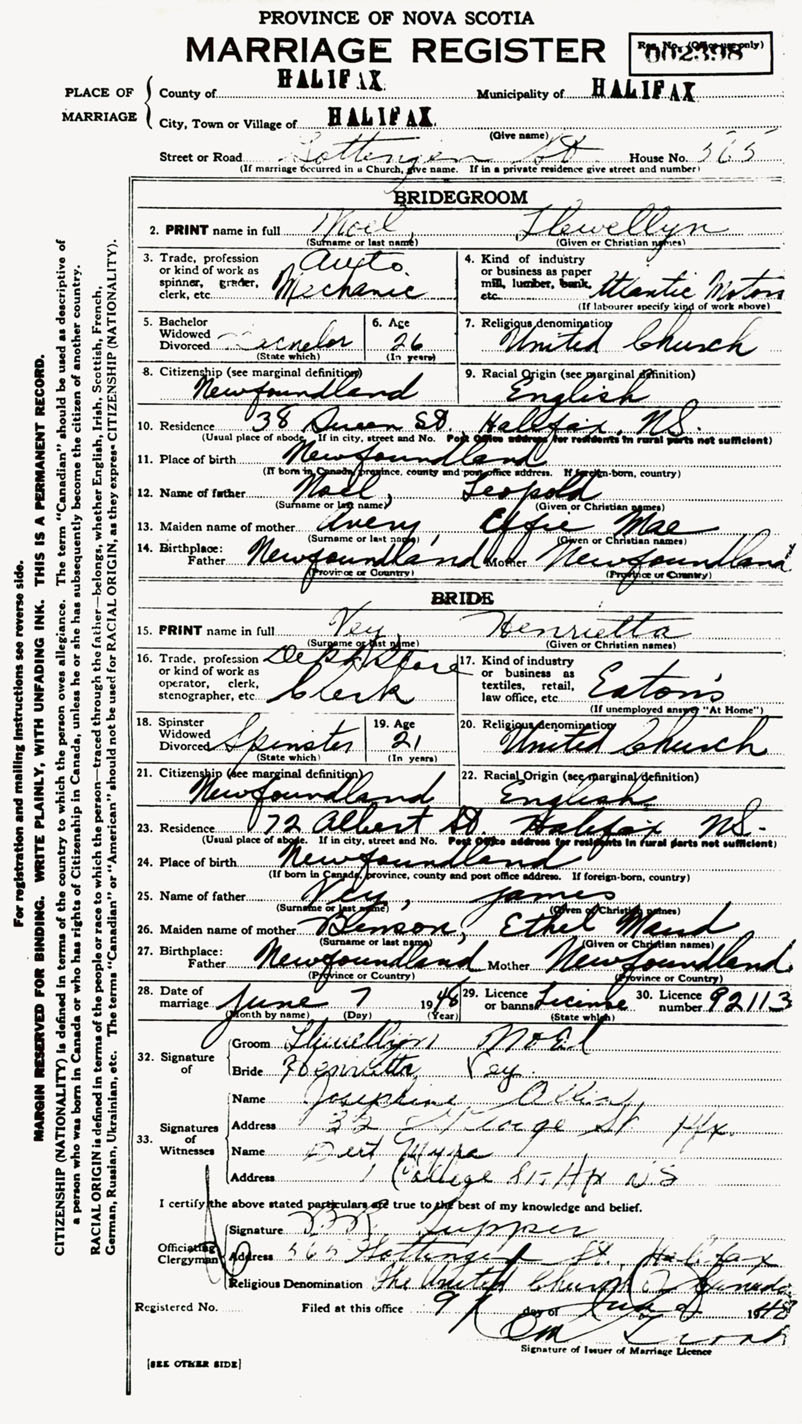 PROVINCE OF NOVA SCOTIA
MARRIAGE REGISTER
Reg. No. (Office use only)
002398
PLACE OF MARRIAGE
County of HALIFAX Municipality of HALIFAX
City, Town or Village of HALIFAX
(Give name)
Street or Road Gottingen St. House No. 565
(If marriage occurred in a Church, give name. If in a private residence give street and number)
BRIDEGROOM
2. PRINT name in full Noel, Llewellyn
(Surname or last name) (Given or Christian names)
3. Trade, profession or kind of work as spinner, grader, clerk, etc. Auto. Mechanic
4. Kind of industry or business as paper mill, lumber, bank, etc. Atlantic Motors
(If labourer specify kind of work above)
5. Bachelor Widowed Divorced Bachelor
(State which)
6. Age 26
(In years)
7. Religious denomination United Church
8. Citizenship (see marginal definition) Newfoundland
9. Racial Origin (see marginal definition) English
10. Residence 38 Queen St. Halifax, N.S.
(Usual place of abode. If in city, street and No. Post Office address for residents in rural parts not sufficient)
11. Place of birth Newfoundland
(If born in Canada, province, county and post office address. If foreign-born, country)
12. Name of father Noel, Leopold
(Surname or last name) (Given or Christian names)
13. Maiden name of mother Avery, Effie Mae
(Surname or last name) (Given or Christian names)
14. Birthplace: Father Newfoundland Mother Newfoundland
(Province or Country) (Province or Country)
BRIDE
15. PRINT name in full Vey Henrietta
(Surname or last name) (Given or Christian names)
16. Trade, profession or kind of work as operator, clerk, stenographer, etc. Dept Store Clerk
17. Kind of industry or business as textiles, retail, law office, etc. Eaton's
(If unemployed answer "At Home")
18. Spinster Widowed Divorced Spinster
(State which)
19. Age 21
(In years)
20. Religious denomination United Church
21. Citizenship (see marginal definition) Newfoundland
22. Racial Origin (see marginal definition) English
23. Residence 72 Albert St. Halifax N.S.
(Usual place of abode. If in city, street and No. Post Office address for residents in rural parts not sufficient)
24. Place of birth Newfoundland
(If born in Canada, province, county and post office address. If foreign-born, country)
25. Name of father Vey, James
(Surname or last name) (Given or Christian names)
26. Maiden name of mother Benson, Ethel Maud
(Surname or last name) (Given or Christian names)
27. Birthplace: Father Newfoundland Mother Newfoundland
(Province or Country) (Province or Country)
28. Date of marriage June 7 1948
(Month by name) (Day) (Year)
29. Licence or banns License
(State which)
30. Licence number 92113
32. Signature of
Groom Llewellyn Noel
Bride Henrietta Vey
33. Signatures of Witnesses
Name Josephine
Address George St Hfx.
Name Bert
Address 1 College St- Hfx N S
I certify the above stated particulars are true to the best of my knowledge and belief.
Officiating Clergyman
Signature Tupper
Address 565 Gottingen St., Halifax
Religious Denomination The United Church of Canada
Registered No. Filed at this office 9 day of 1948
Signature of Issuer of Marriage Licence
[SEE OTHER SIDE]
For registration and mailing instructions see reverse side.
MARGIN RESERVED FOR BINDING. WRITE PLAINLY, WITH UNFADING INK. THIS IS A PERMANENT RECORD.
CITIZENSHIP (NATIONALITY) is defined in terms of the country to which the person owes allegiance. The term "Canadian" should be used as descriptive of
a person who was born in Canada or who has rights of Citizenship in Canada, unless he or she has subsequently become the citizen of another country.
RACIAL ORIGIN is defined in terms of the people or race to which the person—traced through the father—belongs, whether English, Irish, Scottish, French,
German, Russian, Ukrainian, etc. The terms "Canadian" or "American" should not be used for RACIAL ORIGIN, as they express CITIZENSHIP (NATIONALITY).